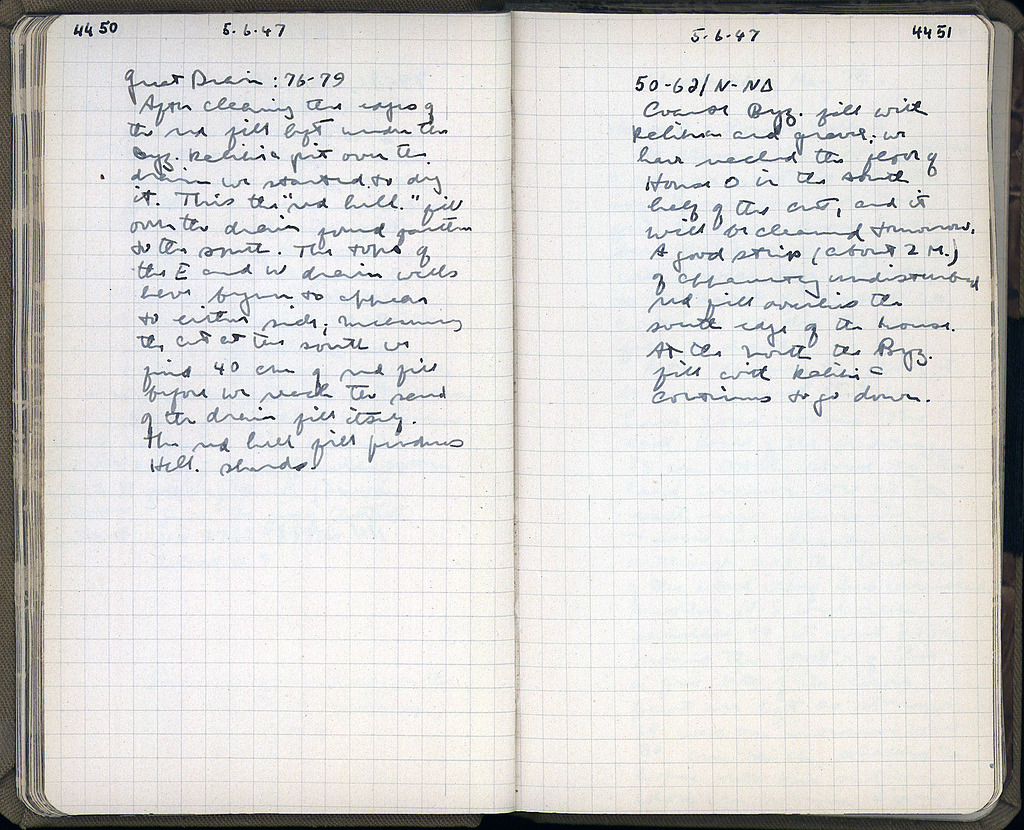 4450 5·6·47
Great Drain : 76-79
After cleaning the edges of
the red fill left under the
Byz. kalibia pit over the
drain we started to dig
it. This the "red hill" fill
over the drain found farther
to the south. The tops of
the E and W drain walls
have begun to appear
to either side;
the cut at the south we
find 40 cm of red fill
before we reach the sand
of the drain fill itself.
The red hill fill produces
Hell. sherds.
5·6·47 4451
50-62/N-NΔ
Coarse Byz. fill with
kalibia and graves; we
have reached the floor of
House O in the south
half of the cut, and it
will be cleaned tomorrow.
A good strip (about 2 M.)
of apparently undisturbed
red fill overlies the
south edge of the house.
At the north the Byz.
fill with kalibia
continues to go down.